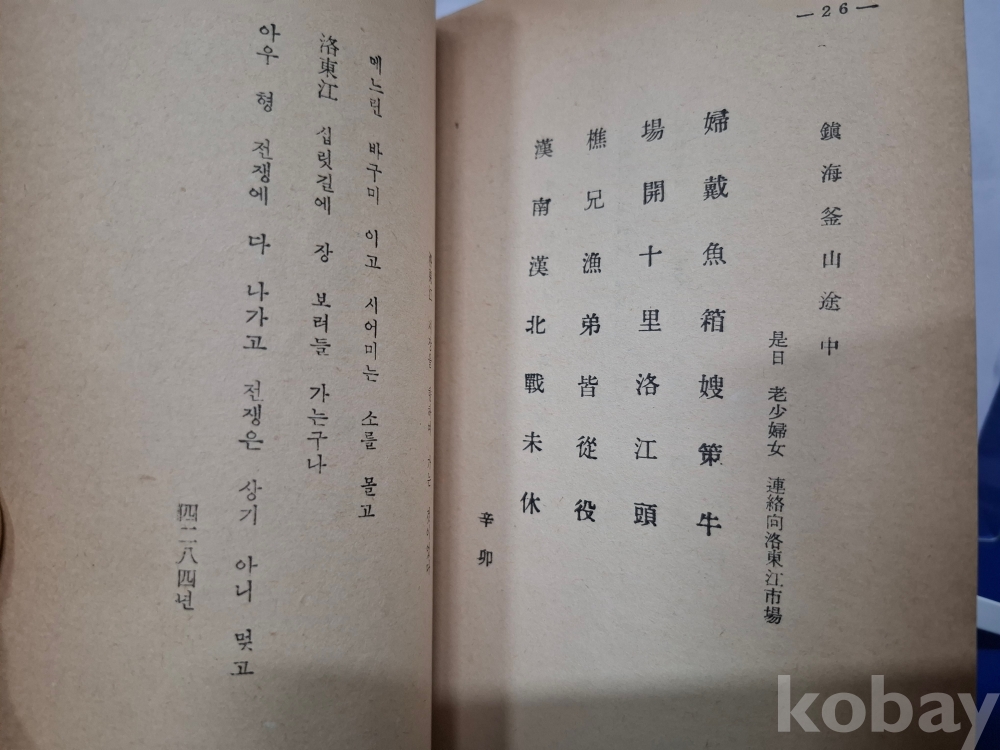 —26—
鎭海釜山途中
是日 老少婦女 連絡向洛東江市場
婦戴魚箱嫂策牛
場開十里洛江頭
樵兄漁弟皆從役
漢南漢北戰未休
辛卯
메느린 바구미 이고 시어미는 소를 몰고
洛東江 십릿길에 장 보러들 가는구나
아우 형 전쟁에 다 나가고 전쟁은 상기 아니 멎고
四二八四년
kobay